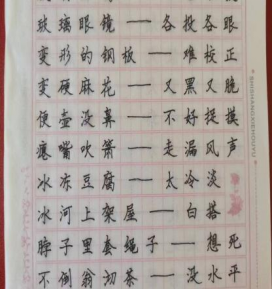 玻璃眼镜——各投各眼
变形的钢板——难校正
变硬麻花——又黑又脆
便壶没鼻——不好捉摸
瘪嘴吹箫——走漏风声
冰冻豆腐——太冷淡
冰河上架屋——白搭
脖子里套绳子——想死
不倒翁沏茶——没水平